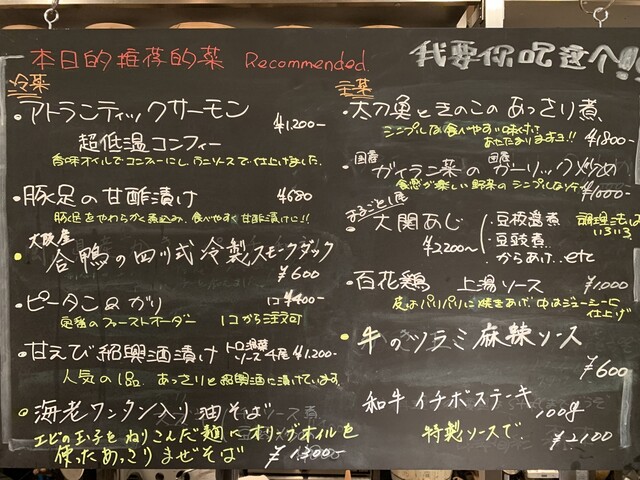 本日的推荐的菜 Recommended.
我要你吃这个!!
冷菜
・アトランティックサーモン
超低温コンフィー ¥1,200-
香味オイルでコンフィーにし、ウニソースで仕上げました。
・豚足の甘酢漬け ¥680
豚足をやわらかく煮込み、食べやすく甘酢漬けに!!
大阪産
・合鴨の四川式冷製スモークダック
¥600
・ピータン&ガリ 1コ ¥400-
定番のファーストオーダー 1コから注文可
・甘えび紹興酒漬け トロ湯葉ソース 4尾 ¥1,200-
人気の1品。あっさりと紹興酒に漬けています。
・海老ワンタン入り油そば
エビの玉子をねりこんだ麺にオリーブオイルを
使ったあっさりまぜそば ¥1,300-
主菜
・太刀魚ときのこのあっさり煮
シンプルな食べやすい味付け
あたたまりますヨ!! ¥1,800-
・国産 ガイラン菜の 国産 ガーリック炒め
食感が楽しい野菜のシンプルな ¥1,000-
まるごと1尾
・大関あじ ¥2,200~
・豆板醤煮
・豆豉煮
・からあげ..etc
調理法は
いろいろ
・百花鶏 上湯ソース ¥1,000
皮はパリパリに焼きあげ、中はジューシーに
仕上げ
・牛のツラミ麻辣ソース
¥600
和牛イチボステーキ 100g
特製ソースで。 ¥2,100